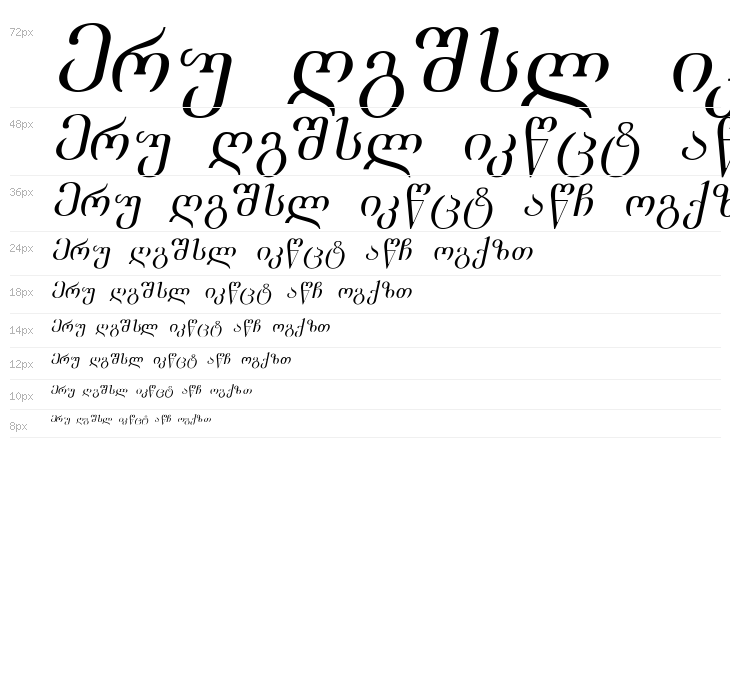 72px მრუ ღგშსლ იკ
48px მრუ ღგშსლ იკწცტ აწ
36px მრუ ღგშსლ იკწცტ აწჩ ოგქზ
24px მრუ ღგშსლ იკწცტ აწჩ ოგქზთ
18px მრუ ღგშსლ იკწცტ აწჩ ოგქზთ
14px მრუ ღგშსლ იკწცტ აწჩ ოგქზთ
12px მრუ ღგშსლ იკწცტ აწჩ ოგქზთ
10px მრუ ღგშსლ იკწცტ აწჩ ოგქზთ
8px მრუ ღგშსლ იკწცტ აწჩ ოგქზთ